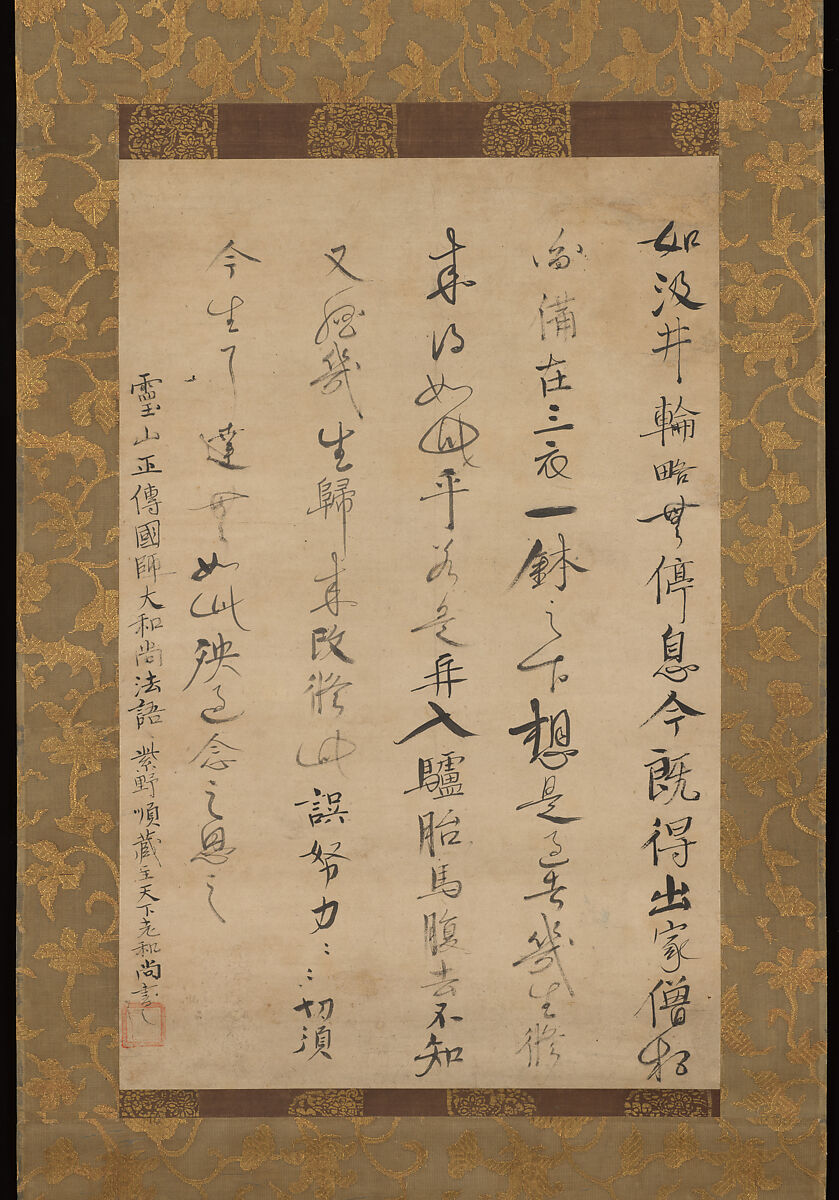 如汲井輪略無停息今既得出家僧相
尚備在三衣一鉢之下想是過去幾生修
来得如此乎若是再入驢胎馬腹去不知
又經幾生歸来改修此誤努力〻〻切須
今生了達無如此殃過念之思之
靈山正傳國師大和尚法語 紫野順蔵主天下老和尚書之